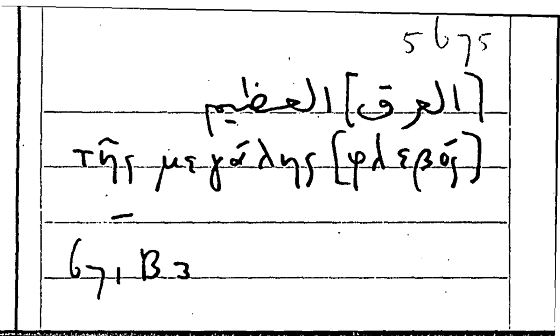 5675
[العرق] العظيم
τῆς μεγάλης [φλεβός]
–
671 B 3